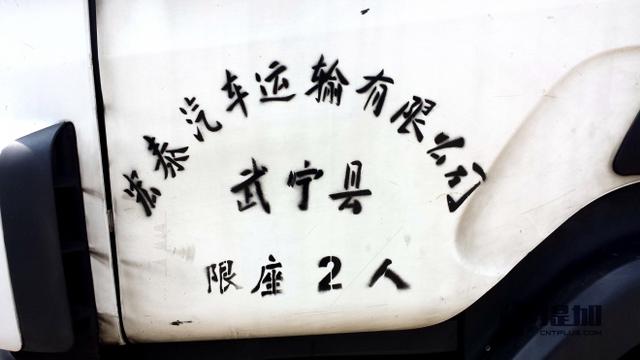 宏泰汽车运输有限公司
武宁县
限座2人
CNTPLUS.COM